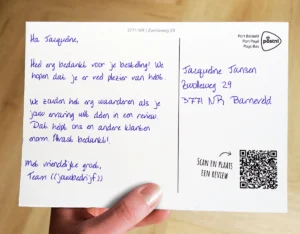 3771 NR | Zwolleweg 29
Port Betaald
Port Payé
Pays-Bas
postnl
Ha Jacqueline,
Heel erg bedankt voor je bestelling! We
hopen dat je er veel plezier van hebt.
We zouden het erg waarderen als je
jouw ervaring wilt delen in een review.
Dat helpt ons en andere klanten
enorm. Alvast bedankt!
Met vriendelijke groet,
Team ((jouwbedrijf))
Jacqueline Jansen
Zwolleweg 29
3771 NR Barneveld
SCAN EN PLAATS
EEN REVIEW